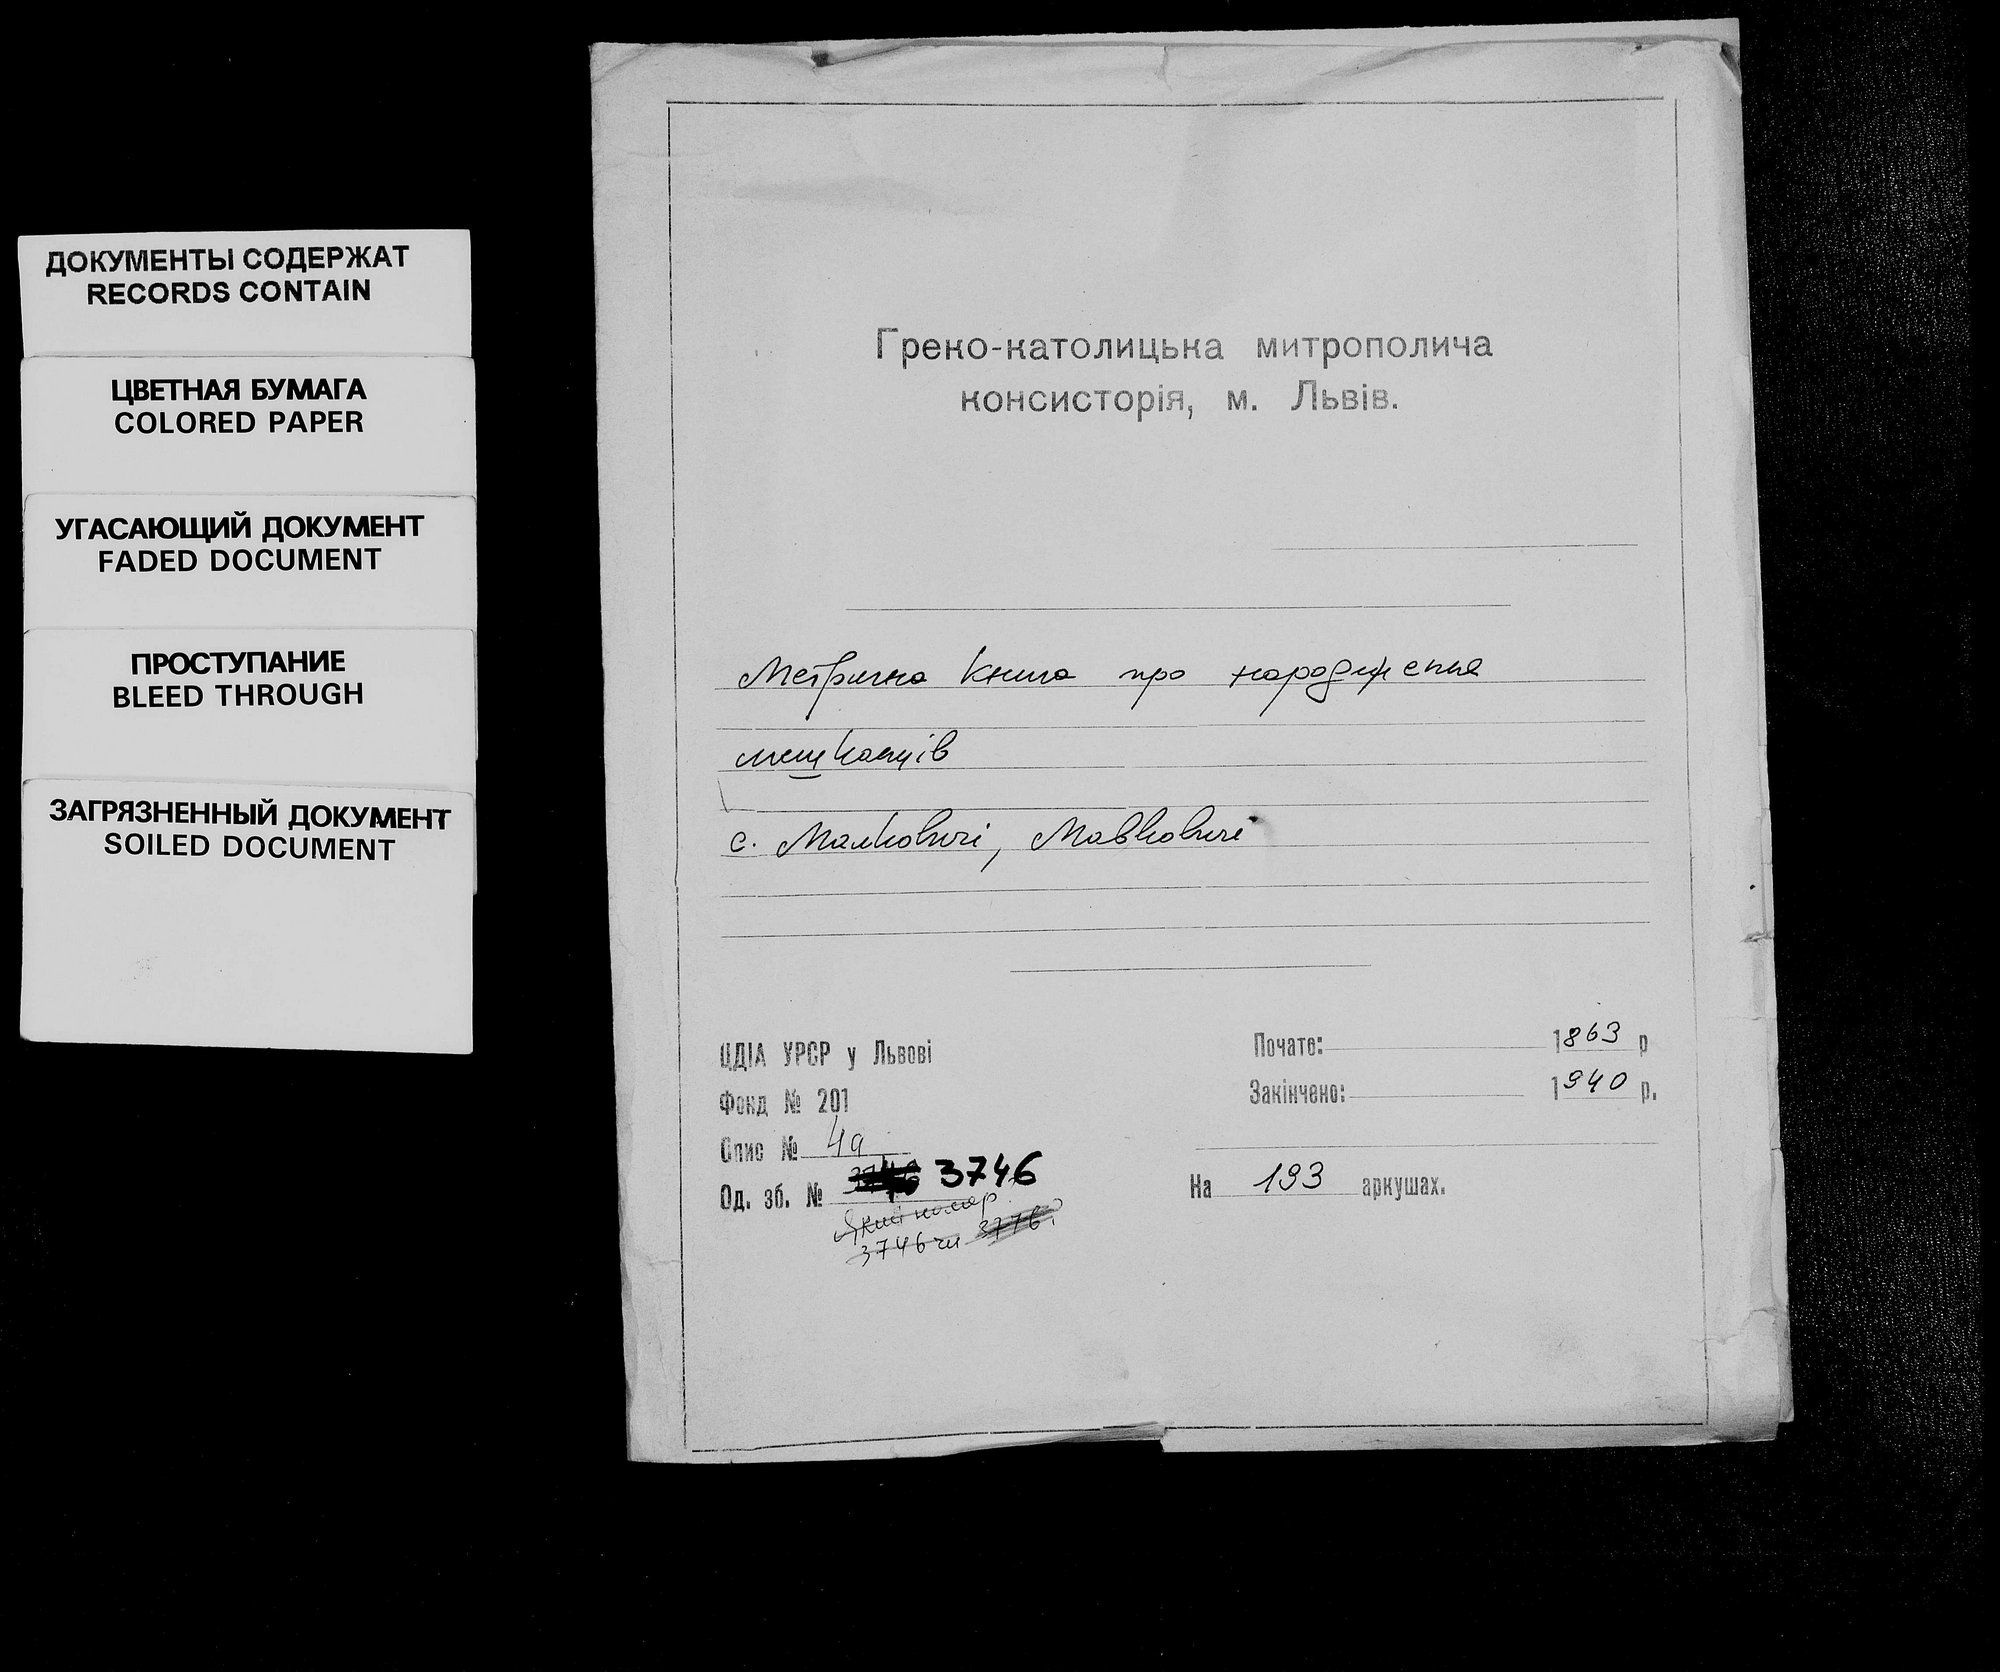 ДОКУМЕНТЫ СОДЕРЖАТ
RECORDS CONTAIN
ЦВЕТНАЯ БУМАГА
COLORED PAPER
УГАСАЮЩИЙ ДОКУМЕНТ
FADED DOCUMENT
ПРОСТУПАНИЕ
BLEED THROUGH
ЗАГРЯЗНЕННЫЙ ДОКУМЕНТ
SOILED DOCUMENT
Греко-католицька митрополича
консисторія, м. Львів.
Метрична книга про народження
мешканців
с. Малковичі, Мавковичі
ЦДІА УРСР у Львові
Фонд № 201
Спис № 4а
Од. зб. № 3746
Який номер
3746 чи 3776?
Почате: 1863 р
Закінчено: 1940 р.
На 193 аркушах.